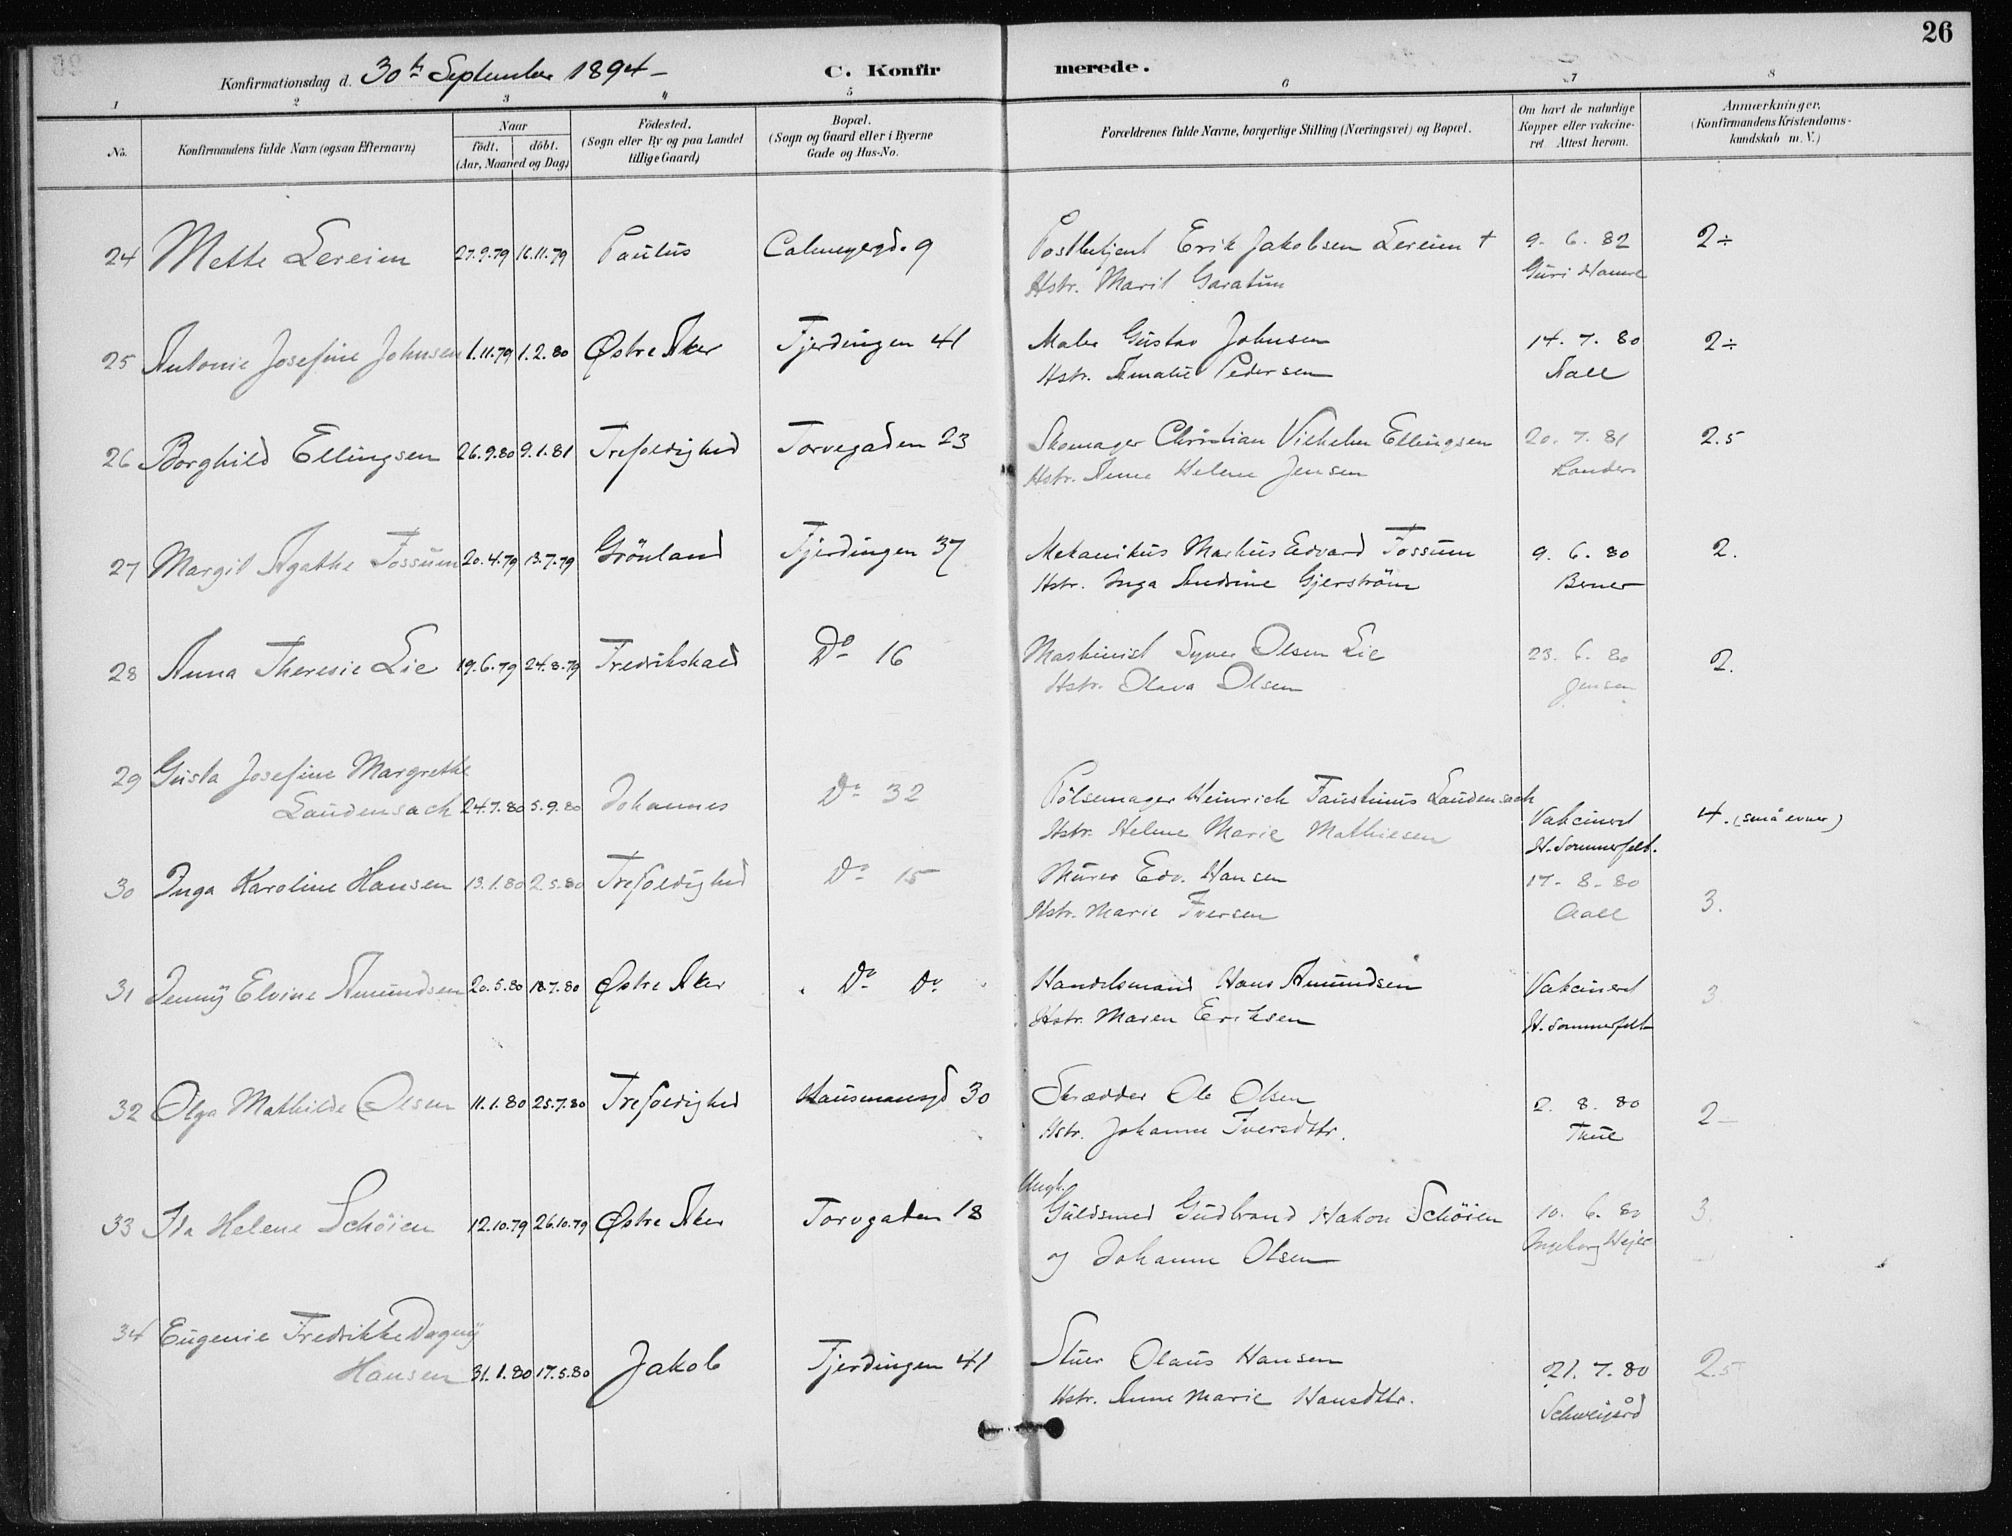 26
Konfirmationsdag d. 30te September 1894 –
C. Konfir
merede.
1 2 3 4 5 6 7 8
No.
Konfirmandens fulde Navn (ogsaa Efternavn)
Naar
födt. döbt.
(Aar, Maaned og Dag)
Födested.
(Sogn eller By og paa Landet
tillige Gaard)
Bopæl.
(Sogn og Gaard eller i Byerne
Gade og Hus-No.
Forældrenes fulde Navne, borgerlige Stilling (Næringsvei) og Bopæl.
Om havt de naturlige
Kopper eller vakcine-
ret. Attest herom.
Anmærkninger.
(Konfirmandens Kristendoms-
kundskab m. V.)
24 Mette Lereim 27.9.79 16.11.79 Paulus Calmeyergd. 9 Postbetjent Erik Jakobsen Lereim + 9. 6. 82 2÷
Hstr. Marit Garatun Guri Hamre
25 Antonie Josefine Johnsen 1.11.79 1.2.80 Østre Aker Fjerdingen 41 Maler Gustav Johnsen 14. 7. 80 2÷
Hstr. Amalie Pedersen Aall
26 Borghild Ellingsen 26.9.80 9.1.81 Trefoldighed Torvegaden 23 Skomager Christian Vilhelm Ellingsen 20. 7. 81 2.5
Hstr. Anne Helene Jensen Randers
27 Margit Agathe Fossum 20.4.79 13.7.79 Grönland Fjerdingen 37 Mekanikus Markus Edvard Fossum 9. 6. 80 2.
Hstr. Inga Andrine Gjerström Berner
28 Anna Theresie Lie 19.6.79 24.8.79 Fredrikshald Do 16 Maskinist Syver Olsen Lie 23. 6. 80 2.
Hstr. Olava Olsen Jensen
29 Gusta Josefine Margrethe
Laudensach 24.7.80 5.9.80 Johannes Do 32 Pölsemager Heinrich Faustinus Laudensach Vakcineret 4. (små evner)
Hstr. Helene Marie Mathiesen H. Sommerfelt.
30 Inga Karoline Hansen 13.1.80 2.5.80 Trefoldighed Do 15 Murer Edv. Hansen 17. 8. 80 3.
Hstr. Marie Iversen Aall
31 Jenny Elvine Amundsen 20.5.80 18.7.80 Østre Aker Do Do Handelsmand Hans Amundsen Vakcineret 3
Hstr. Maren Eriksen H. Sommerfelt
32 Olga Mathilde Olsen 11.1.80 25.7.80 Trefoldighed Hausmannsgd 30 Skrædder Ole Olsen 2. 8. 80 2 –
Hstr. Johanne Iversdtr. Thue
33 Ida Helene Schöien 12.10.79 26.10.79 Østre Aker Torvgaden 18 Ungk.
Guldsmed Gudbrand Hakon Schöien 10. 6. 80 3.
og Johanne Olsen Ingeborg
34 Eugenie Fredrikke Dagny
Hansen 31.1.80 17.5.80 Jakob Fjerdingen 41 Stuer Olaus Hansen 21. 7. 80 2.5
Hstr. Anne Marie Hansdtr. Schweigård